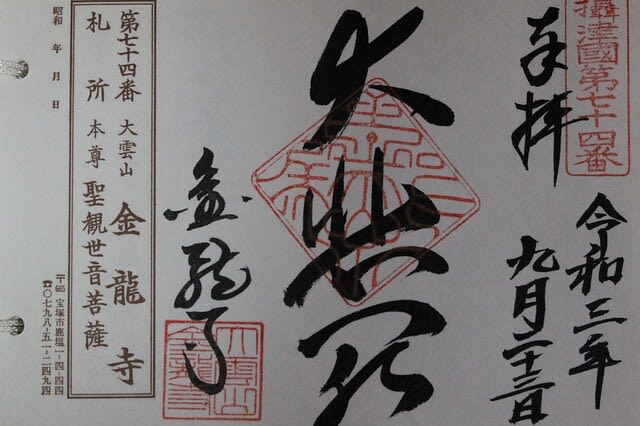 攝津國第七十四番
奉拝
令和三年
九月二十三日
大悲殿
金龍寺
大雲山
金龍寺
第七十四番 大雲山 金龍寺
札所 本尊 聖観世音菩薩
昭和 年 月 日
〒665 宝塚市鹿塩一-四-四四
☎〇七九八-五一-二四九四